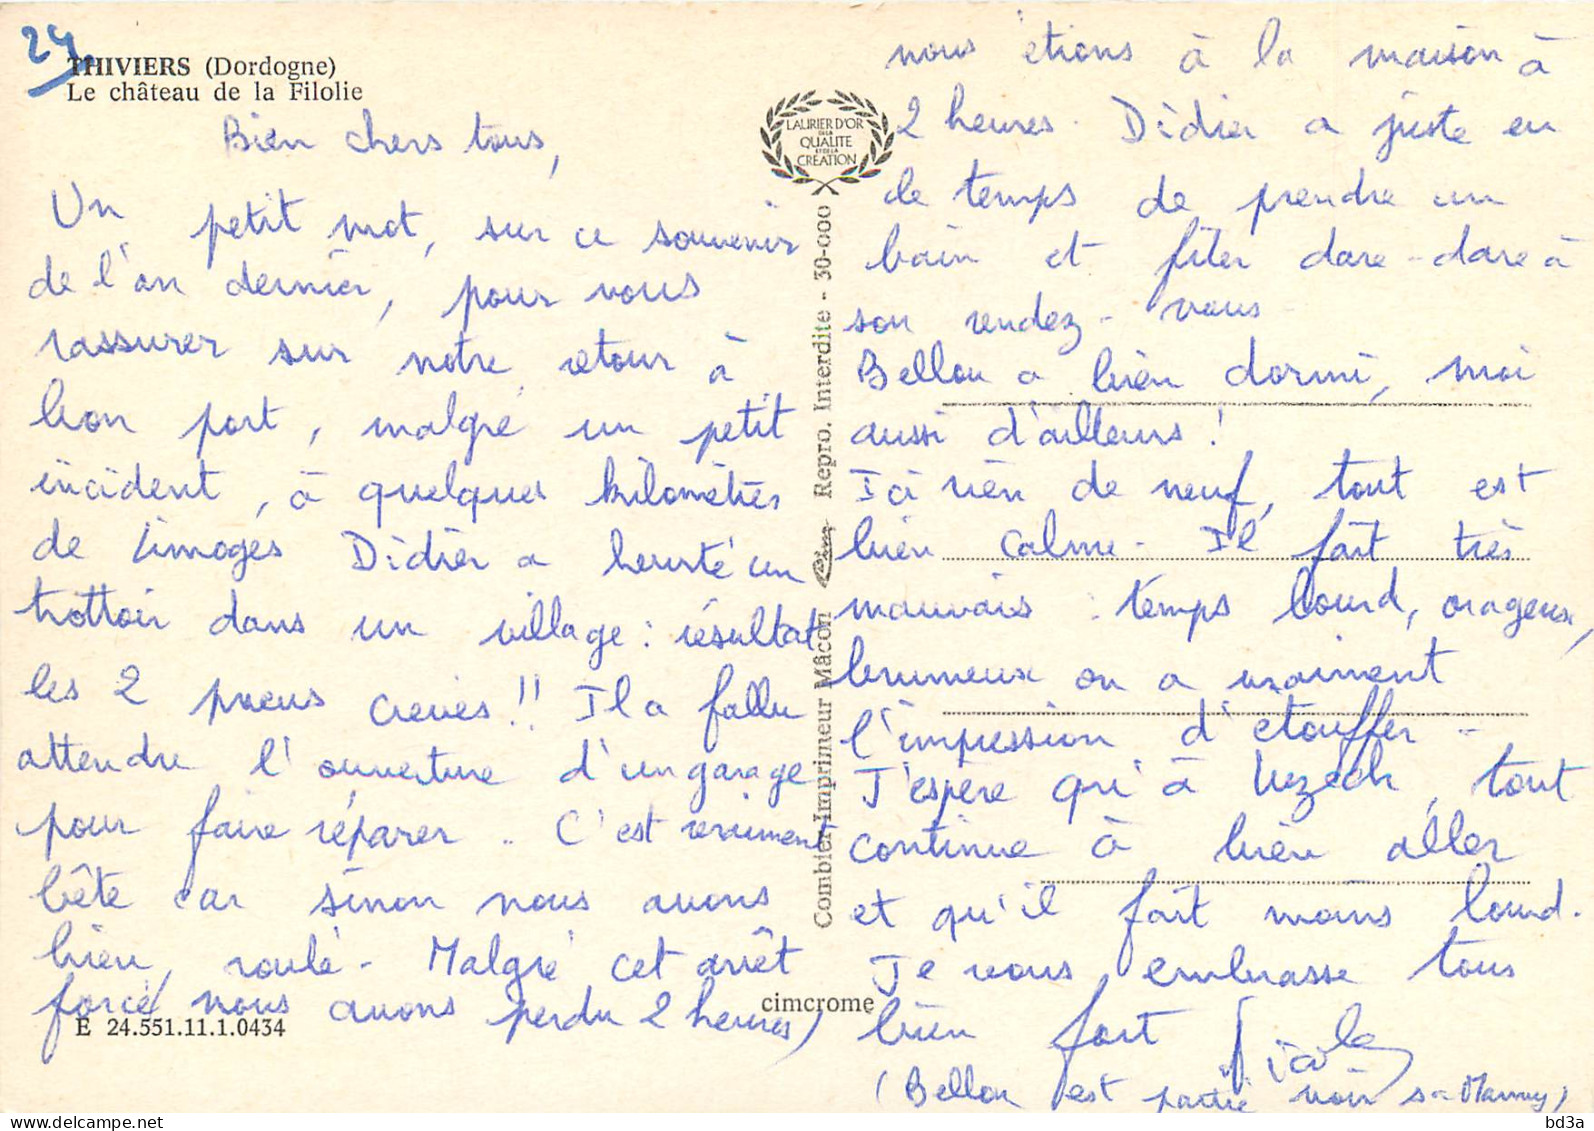 24
THIVIERS (Dordogne)
Le château de la Filolie
Bien chers tous,
Un petit mot, sur ce souvenir
de l'an dernier, pour vous
rassurer sur notre retour à
bon port, malgré un petit
incident, à quelques kilomètres
de Limoges Didier a heurté un
trottoir dans un village : résultat
les 2 pneus crevés !! Il a fallu
attendre l'ouverture d'un garage
pour faire réparer.. C'est vraiment
bête car sinon nous avons
bien, roulé - Malgré cet arrêt
forcé nous avons perdu 2 heures)
E 24.551.11.1.0434
cimcrome
LAURIER D'OR
DE LA
QUALITE
ET DE LA
CREATION
Combier Imprimeur Mâcon Cim Repro. Interdite - 30-000
nous étions à la maison à
2 heures. Didier a juste eu
le temps de prendre un
bain et filer dare-dare à
son rendez-vous -
Bellou a bien dormi, moi
aussi d'ailleurs !
Ici rien de neuf, tout est
bien calme - Il fait très
mauvais : temps lourd, orageux,
brumeux on a vraiment
l'impression d'étouffer -
J'espère qu'à Uzech, tout
continue à bien aller
et qu'il fait moins lourd.
Je vous embrasse tous
bien fort
(Bellou est partie voir sa Mamy)